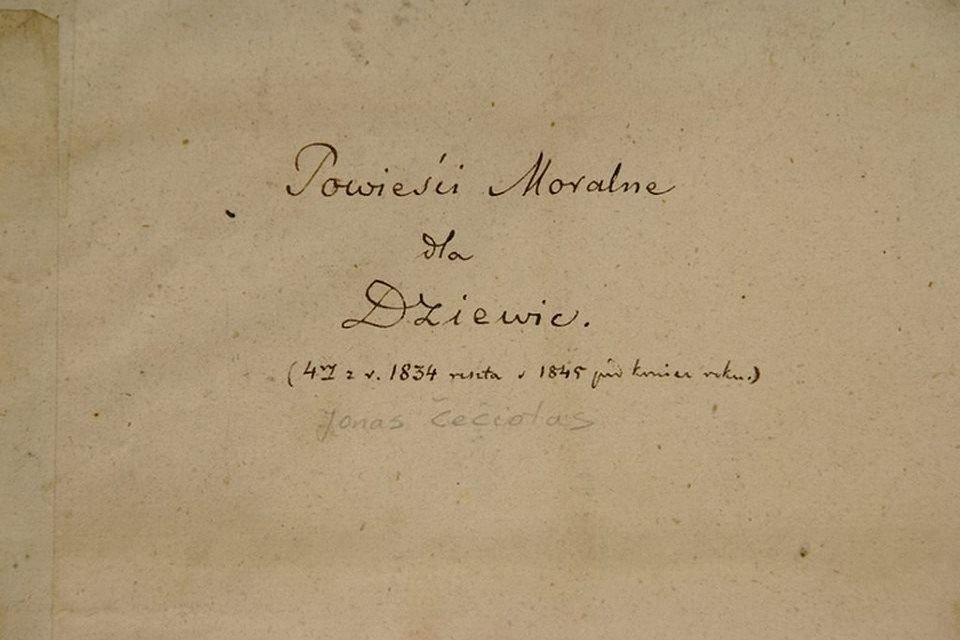 Powieści Moralne
dla
Dziewic.
(4ry z r. 1834 reszta r 1845 pod koniec roku.)
Jonas Čečiotas